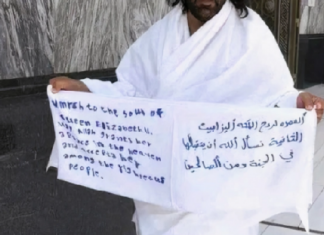 umrah to the soul of
Queen Elizabeth II,
may Allah her
in the heaven
and accepts her
among the righteous
people.
العمره لروح الملكه أليزابيث
الثانية نسأل الله ان يتقبلها
في الجنة ومن الصالحين